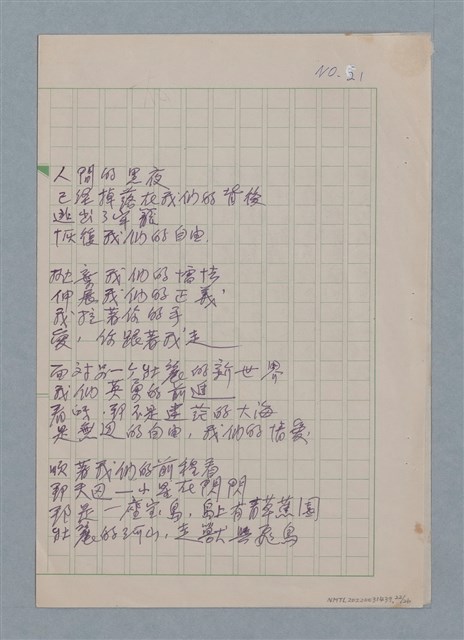 NO. 21
人間的黑夜
已經掉落在我們的背後
逃出了牢籠
恢復我們的自由.
拋棄我們的惰性
伸展我們的正義
我拉著你的手
愛,你跟著我走——
面對另一个壯麗的新世界
我們英勇的前進——
看吶,那不是蒼茫的大海
是無邊的自由,我們的情愛,
映著我們的前程看
那天邊一小星在閃閃
那是一座寶島,島上有青草蕉園
壯麗的河山,走獸與飛鳥
NMTL20020031439